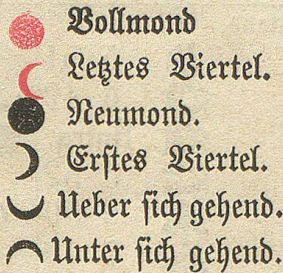 Vollmond
Letztes Viertel.
Neumond.
Erſtes Viertel.
Ueber ſich gehend.
Unter ſich gehend.